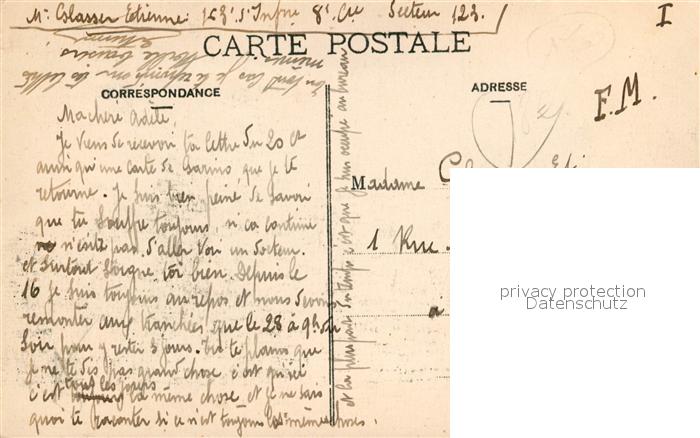 Mr Colasser Etienne 153e d'Infrie 8e Cie Secteur 123.
I
CARTE POSTALE
CORRESPONDANCE
ADRESSE
F.M.
Ma chère Adèle,
Je viens de recevoir ta lettre du 20 ct
ainsi qu'une carte de Garino que je te
retourne. Je suis bien peiné de savoir
que tu souffre toujours, si ca continue
n'ésite pas d'aller voir un docteur.
et surtout soigne toi bien. Depuis le
16 je suis toujours au repos et nous devons
remonter aux tranchées que le 28 à 9h du
soir pour y rester 3 jours. Tu te plains que
je ne te dis pas grand chose c'est qu'ici
c'est tous les jours la même chose et je ne sais
quoi te raconter si ce n'est toujours les mêmes choses.
et la plus part du temps c'est que je suis occupé au bureau
Madame
1 Rue
a
privacy protection
Datenschutz